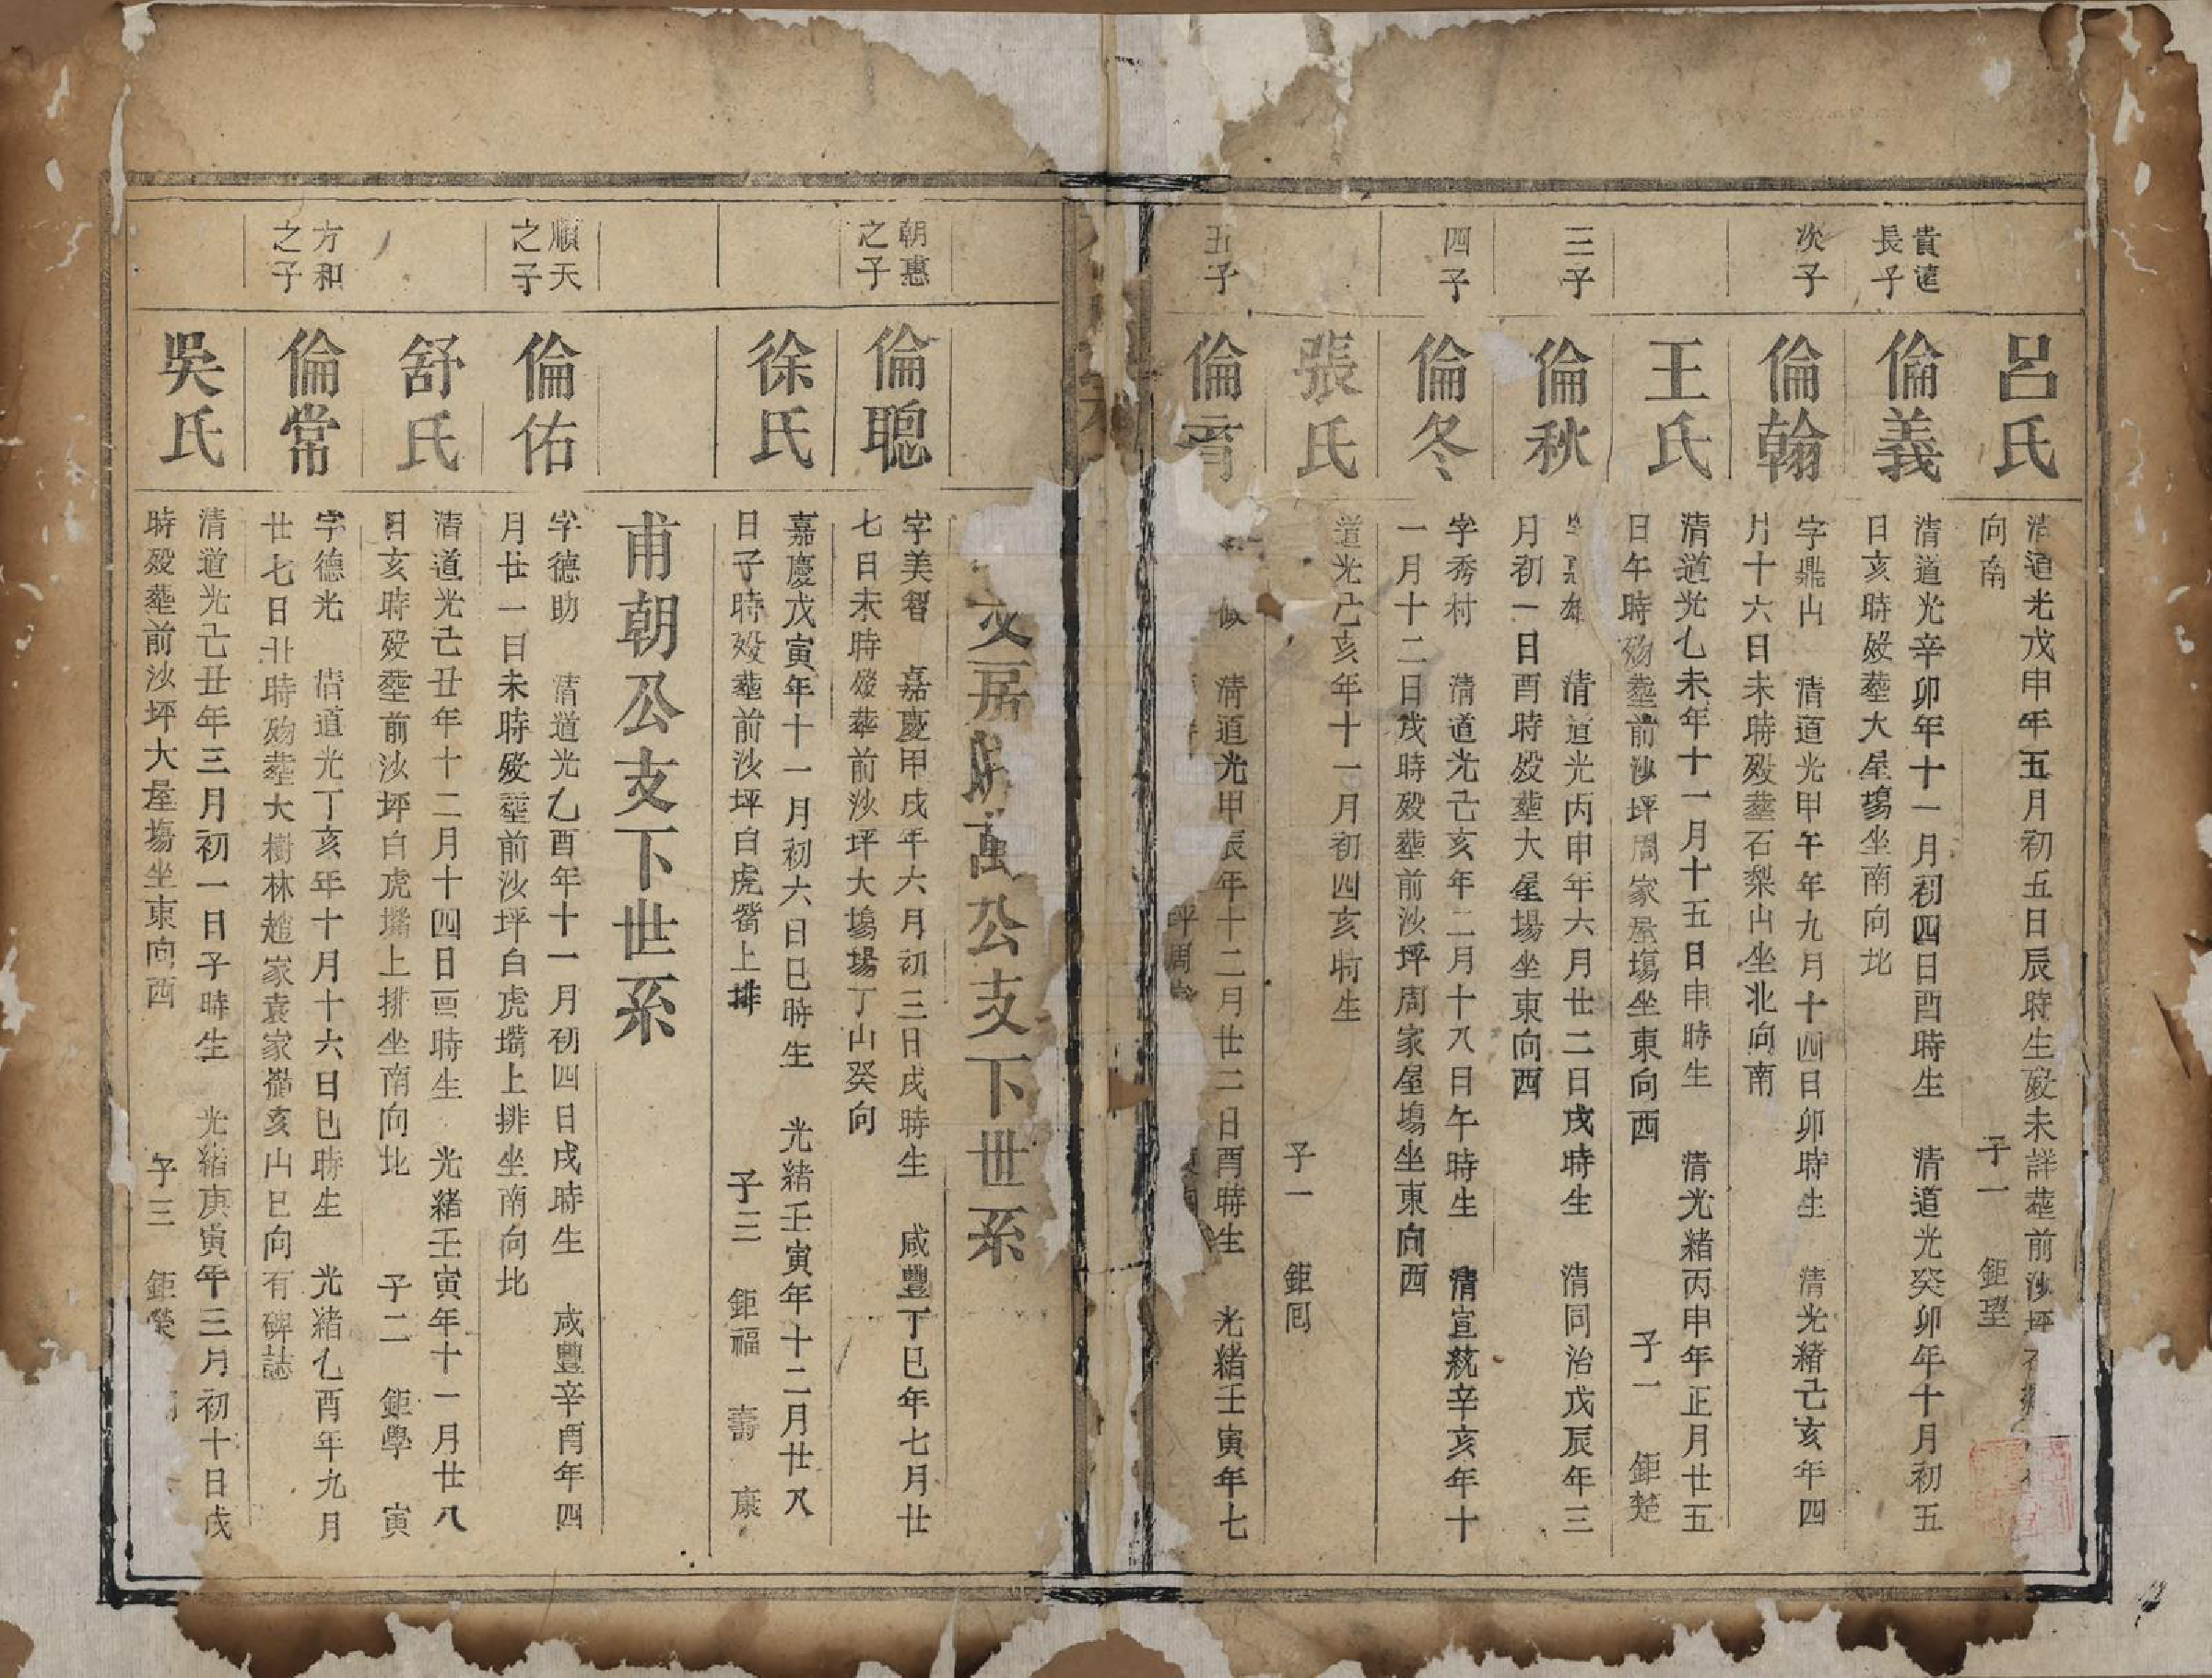 呂氏
清道光戊申年五月初五日辰時生歿未詳塟前沙坪
向南
子一 鉅望
貴達長子
倫義
清道光辛卯年十一月初四日酉時生 清道光癸卯年十月初五
日亥時歿塟大屋塲坐南向北
次子
倫翰
字鼎山 清道光甲午年九月十四日卯時生 清光緒己亥年四
月十六日未時歿塟石梨山坐北向南
王氏
清道光乚未年十一月十五日申時生 清光緒丙申年正月廿五
日午時歿塟前沙坪周家屋塲坐東向西 子一 鉅楚
三子
倫秋
清道光丙申年六月廿二日戌時生 清同治戊辰年三
月初一日酉時歿塟大屋場坐東向西
四子
倫冬
字秀村 清道光己亥年二月十八日午時生 清宣統辛亥年十
一月十二日戌時歿塟前沙坪周家屋塲坐東向西
張氏
道光己亥年十一月初四亥時生
子一 鉅囘
五子
倫
清道光甲辰年十二月廿二日酉時生 光緒壬寅年七
坪周
萬公支下世系
朝惠之子
倫聰
字美智 嘉慶甲戌年六月初三日戌時生 咸豐丁巳年七月廿
七日未時歿塟前沙坪大塢場丁山癸向
徐氏
嘉慶戊寅年十一月初六日巳時生 光緒壬寅年十二月廿八
日子時歿塟前沙坪白虎嘴上排 子三 鉅福 壽 康
甫朝公支下世系
順天之子
倫佑
字德助 清道光乙酉年十一月初四日戌時生 咸豐辛酉年四
月廿一日未時歿塟前沙坪白虎嘴上排坐南向北
舒氏
清道光己丑年十二月十四日酉時生 光緒壬寅年十一月廿八
日亥時歿塟前沙坪白虎嘴上排坐南向北 子二 鉅學 寅
方和之子
倫常
字德光 清道光丁亥年十月十六日巳時生 光緒乚酉年九月
廿七日丑時歿塟大樹林趙家袁家嶺亥山巳向有碑誌
吳氏
清道光己丑年三月初一日子時生 光緒庚寅年三月初十日戌
時歿塟前沙坪大屋塲坐東向西 子三 鉅榮